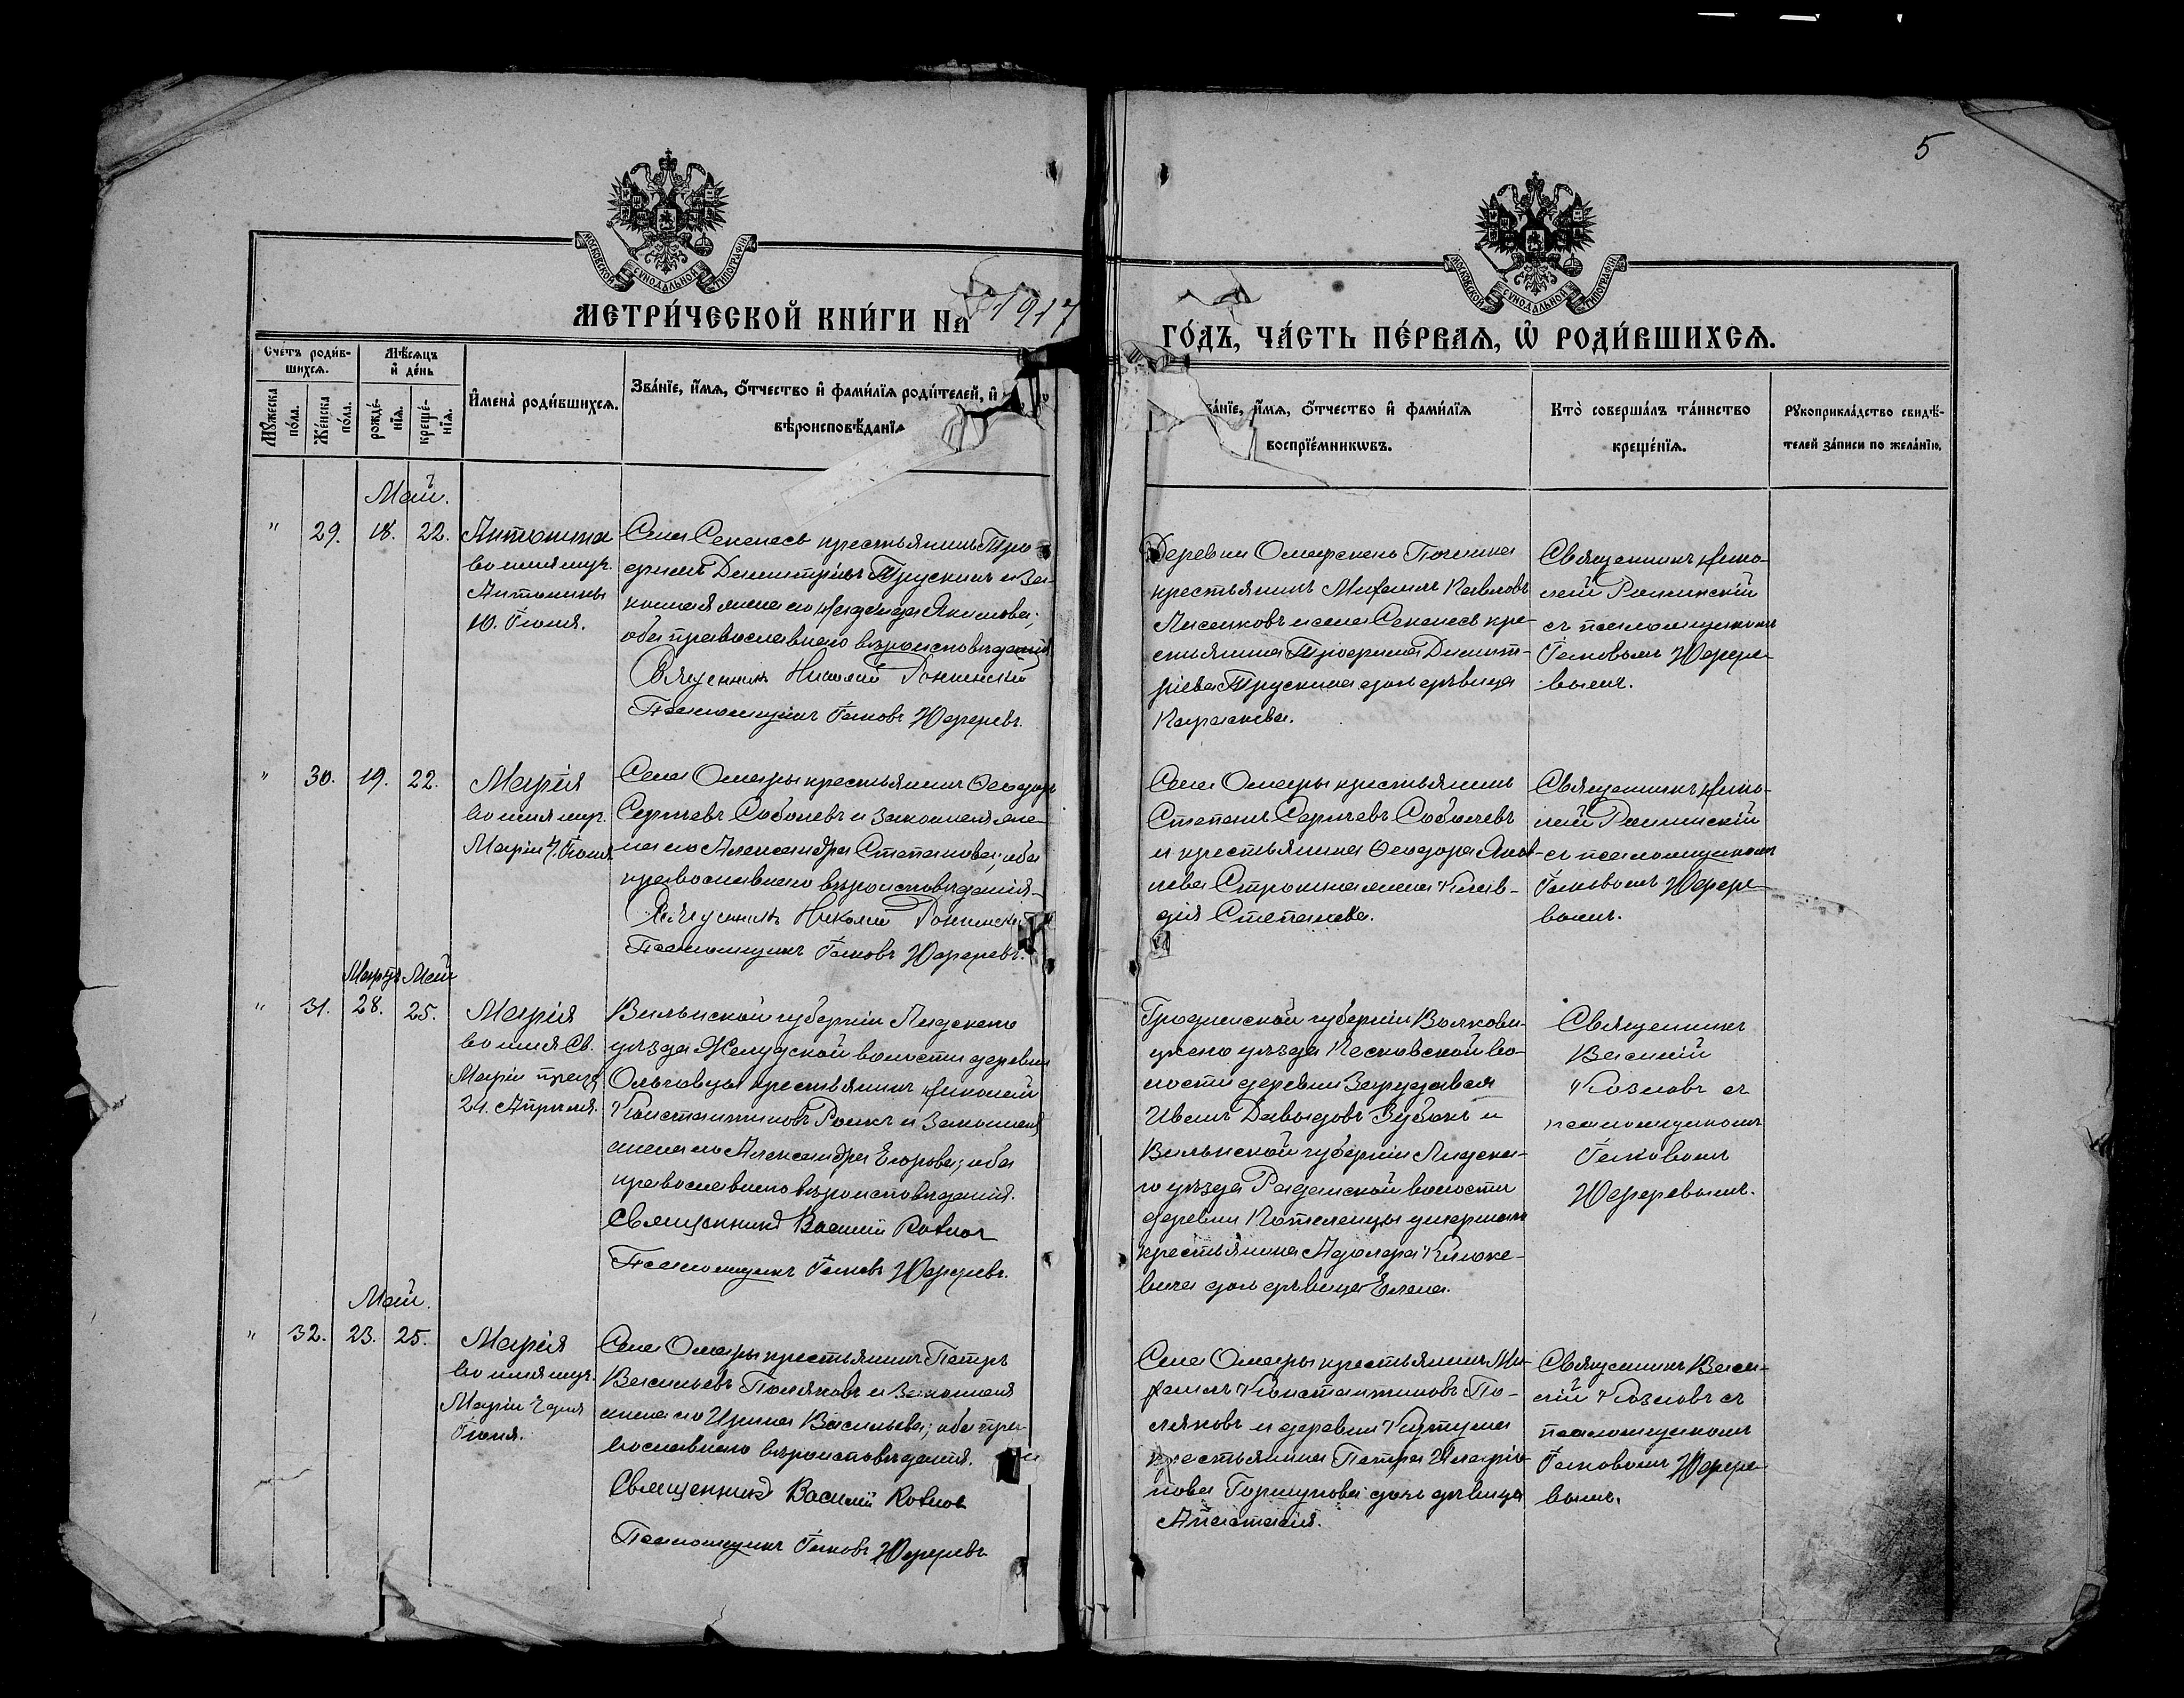 5
МОСКОВСКОЙ СѴНОДАЛЬНОЙ ТИПОГРАФІИ
МОСКОВСКОЙ СѴНОДАЛЬНОЙ ТИПОГРАФІИ
МЕТРИ́ЧЕСКОЙ КНИ́ГИ НА 1917
ГО́ДЪ, ЧА́СТЬ ПЕ́РВАѦ, Ѡ҆ РОДИ́ВШИХСѦ.
Сче́тъ роди́в-
шихсѧ.
Мѣ́сѧцъ
и҆ де́нь
Мꙋ́жеска
по́ла.
Же́нска
по́ла.
рожде́-
нїѧ.
креще́-
нїѧ.
И҆мена̀ роди́вшихсѧ.
Зва́нїе, и҆́мѧ, ѻ҆́тчество и҆ фами́лїѧ роди́телей, и҆
вѣроисповѣ́данїѧ
а́нїе, и҆́мѧ, ѻ҆́тчество и҆ фами́лїѧ
воспрїе́мникѡвъ.
Кто̀ соверша́лъ та́инство
креще́нїѧ.
Рꙋкоприкла́дство свидѣ́-
телей за́писи по жела́нїю.
Май.
" 29. 18. 22.
Антонина
во имя муч.
Антонины
10. Іюня.
Села Секенесь крестьянинъ Тро-
фимъ Димитріевъ Трускинъ и за-
конная жена его Надежда Якимова;
оба православнаго вѣроисповѣданія
Священникъ Николай
Псаломщикъ Іаковъ Юферевъ.
Деревни Омарскаго Починка
крестьянинъ Михаилъ Павловъ
Лисенковъ и села Секенесь кре-
стьянина Трофима Димит-
ріева Трускина дочь дѣвица
Параскева.
Священникъ Нико-
лай
съ псаломщикомъ
Іаковомъ Юфере-
вымъ.
" 30. 19. 22.
Марія
во имя муч.
Маріи 7. Іюня.
Села Омары крестьянинъ Ѳеодоръ
Сергѣевъ Соболевъ и законная же-
на его Александра Степанова; оба
православнаго вѣроисповѣданія
Священникъ Николай
Псаломщикъ Іаковъ Юферевъ.
Села Омары крестьянинъ
Степанъ Сергѣевъ Соболевъ
и крестьянина Ѳеодора Яков-
лева Строкина жена Клав-
дія Степанова.
Священникъ Нико-
лай
съ псаломщикомъ
Іаковомъ Юфере-
вымъ.
Мартъ Май
" 31. 28. 25.
Марія
во имя Св.
Маріи
24. Апрѣля.
Виленской губерніи Лидскаго
уѣзда Желудской волости деревни
Ольховцы крестьянинъ Николай
Константиновъ и законная
жена его Александра Егорова; оба
православнаго вѣроисповѣданія.
Священникъ Василій Козлов
Псаломщикъ Іаковъ Юферевъ.
Гродненской губерніи Волкови-
скаго уѣзда Песковской во-
лости деревни Зарудавья
Иванъ Давыдовъ Зубокъ и
Виленской губерніи Лидска-
го уѣзда волости
деревни умершаго
крестьянина Адольфа
дочь дѣвица Елена.
Священникъ
Василій
Козловъ съ
псаломщикомъ
Іаковомъ
Юферевымъ.
Май.
" 32. 23. 25.
Марія
во имя муч.
Маріи
Іюня.
Села Омары крестьянинъ Петръ
Васильевъ Поляковъ и законная
жена его Ирина Васильева; оба пра-
вославнаго вѣроисповѣданія.
Священникъ Василій Козлов
Псаломщикъ Іаковъ Юферевъ
Села Омары крестьянинъ Ми-
хаилъ Константиновъ По-
ляковъ и деревни
крестьянина Петра Иларіо-
нова Горшунова дочь дѣвица
Анастасія.
Священникъ Васи-
лій Козловъ съ
псаломщикомъ
Іаковомъ Юфере-
вымъ.